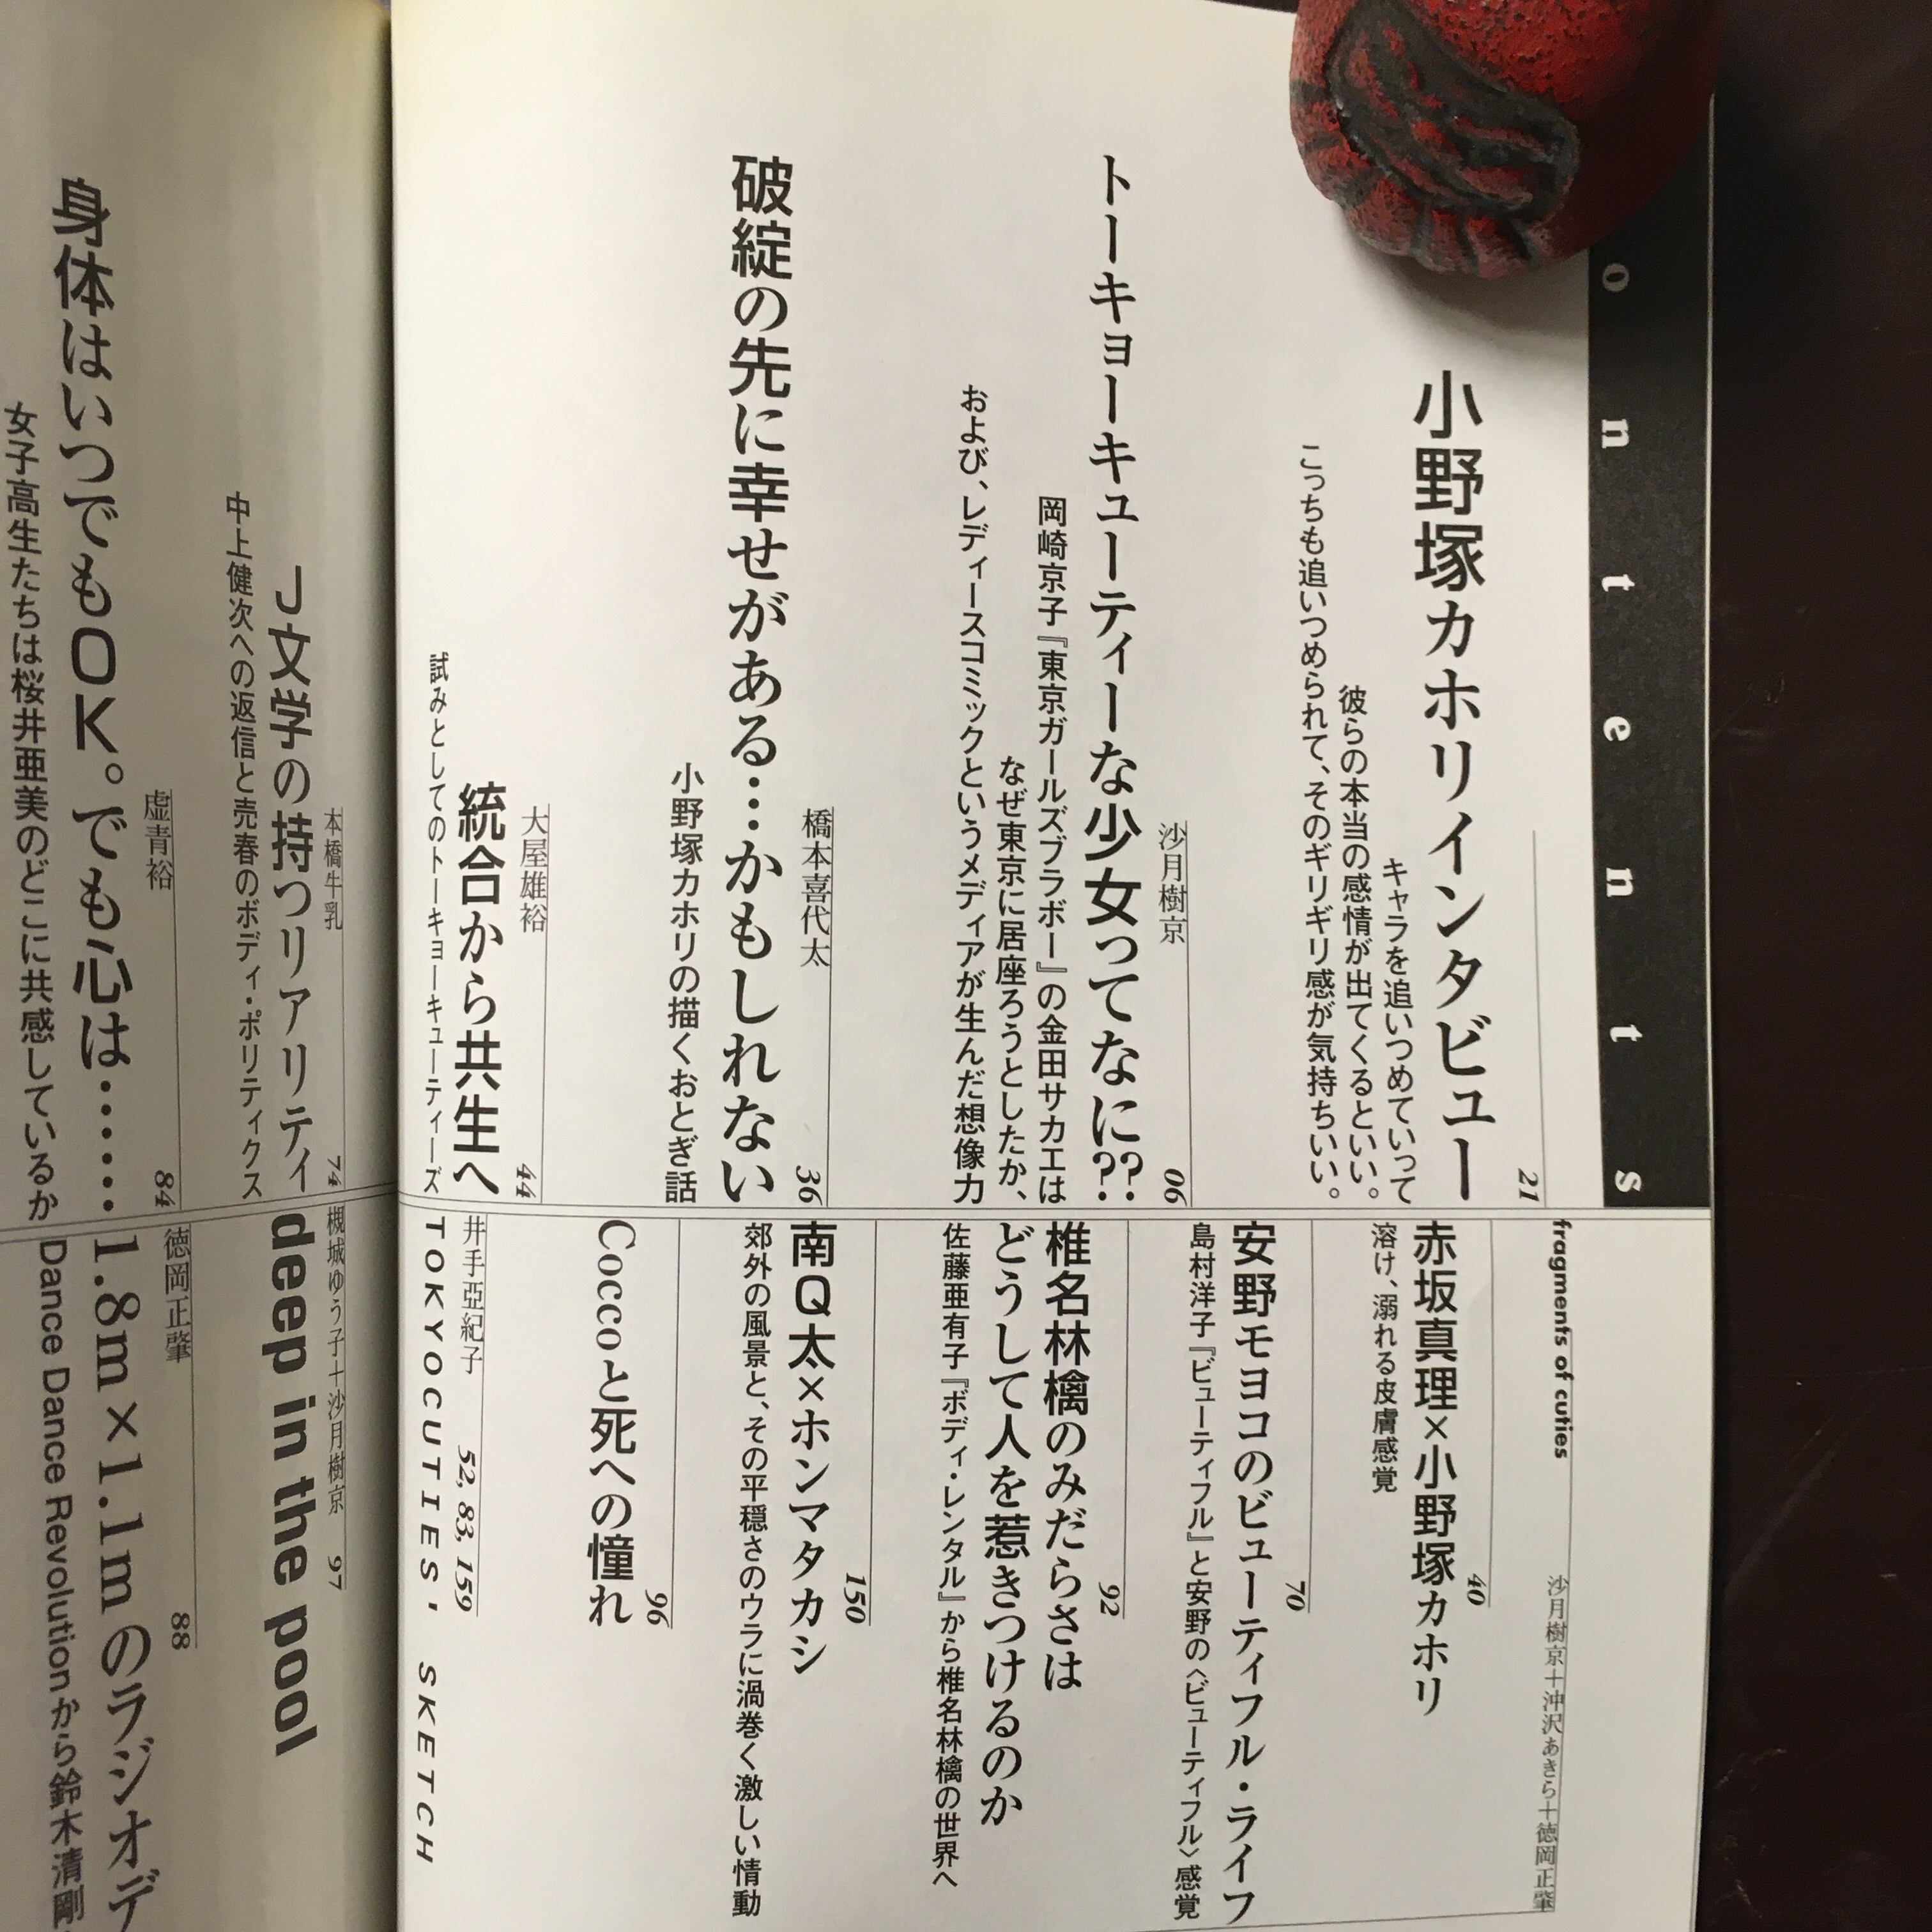 ontents
21
小野塚カホリインタビュー
キャラを追いつめていって
彼らの本当の感情が出てくるといい。
こっちも追いつめられて、そのギリギリ感が気持ちいい。
沙月樹京
06
トーキョーキューティーな少女ってなに??
岡崎京子『東京ガールズブラボー』の金田サカエは
なぜ東京に居座ろうとしたか、
および、レディースコミックというメディアが生んだ想像力
橋本喜代太
36
破綻の先に幸せがある…かもしれない
小野塚カホリの描くおとぎ話
大屋雄裕
44
統合から共生へ
試みとしてのトーキョーキューティーズ
fragments of cuties
沙月樹京＋沖沢あきら＋徳岡正肇
40
赤坂真理×小野塚カホリ
溶け、溺れる皮膚感覚
70
安野モヨコのビューティフル・ライフ
島村洋子『ビューティフル』と安野の〈ビューティフル〉感覚
92
椎名林檎のみだらさは
どうして人を惹きつけるのか
佐藤亜有子『ボディ・レンタル』から椎名林檎の世界へ
150
南Q太×ホンマタカシ
郊外の風景と、その平穏さのウラに渦巻く激しい情動
96
Coccoと死への憧れ
井手亞紀子
52, 83, 159
TOKYOCUTIES' SKETCH
本橋牛乳
74
J文学の持つリアリティ
中上健次への返信と売春のボディ・ポリティクス
虚青裕
84
身体はいつでもOK。でも心は……
女子高生たちは桜井亜美のどこに共感しているか
槻城ゆう子＋沙月樹京
97
deep in the pool
徳岡正肇
88
1.8m×1.1mのラジオデ
Dance Dance Revolutionから鈴木清剛